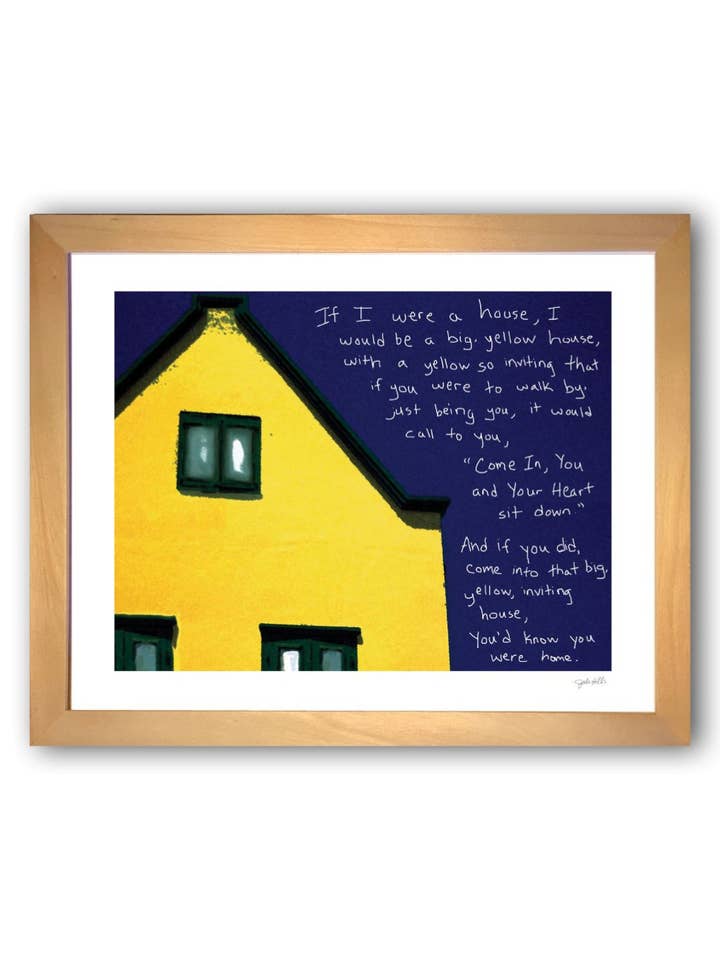 If I were a house, I
would be a big, yellow house,
with a yellow so inviting that
if you were to walk by,
just being you, it would
call to you,
"Come In, You
and Your Heart
sit down."
And if you did,
come into that big,
yellow, inviting
house,
You'd know you
were home.